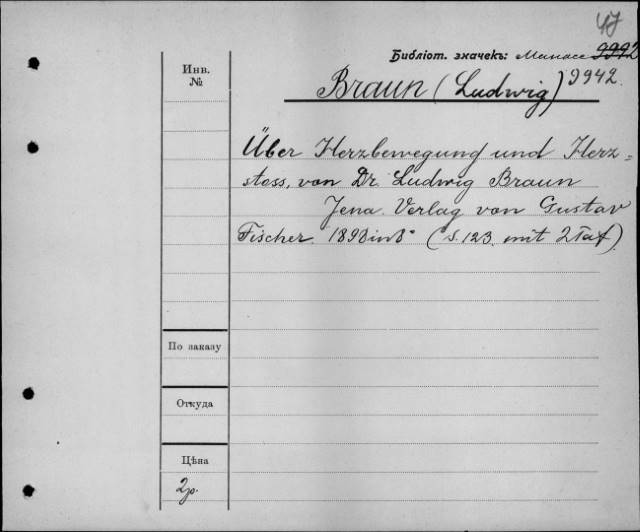 47
Библіот. значекъ: Манасе 9992
9942.
Braun (Ludwig)
Инв.
№
Über Herzbewegung und Herz=
stoss, von Dr. Ludwig Braun
Jena. Verlag von Gustav
Fischer. 1898 in 8° (S. 123. mit 2 Taf)
По заказу
Откуда
Цѣна
2р.